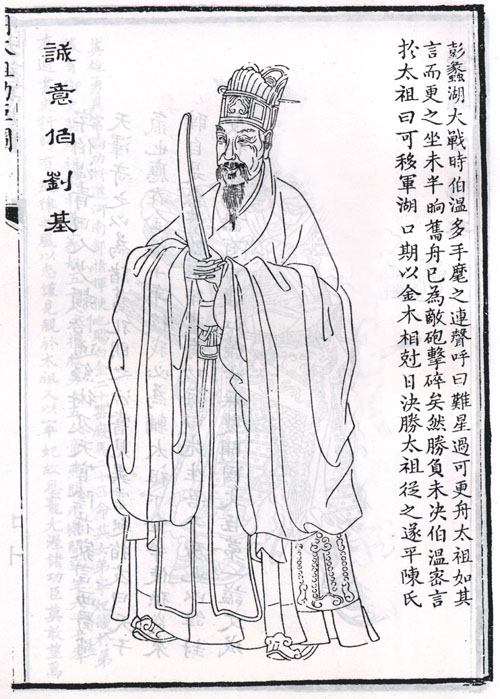 彭蠡湖大戰時伯温多手麾之連聲呼曰難星過可更舟太祖如其
言而更之坐未半晌舊舟已為敵砲擊碎矣然勝負未決伯温密言
扵太祖曰可移軍湖口期以金木相尅日決勝太祖從之遂平陳氏
誠意伯劉基